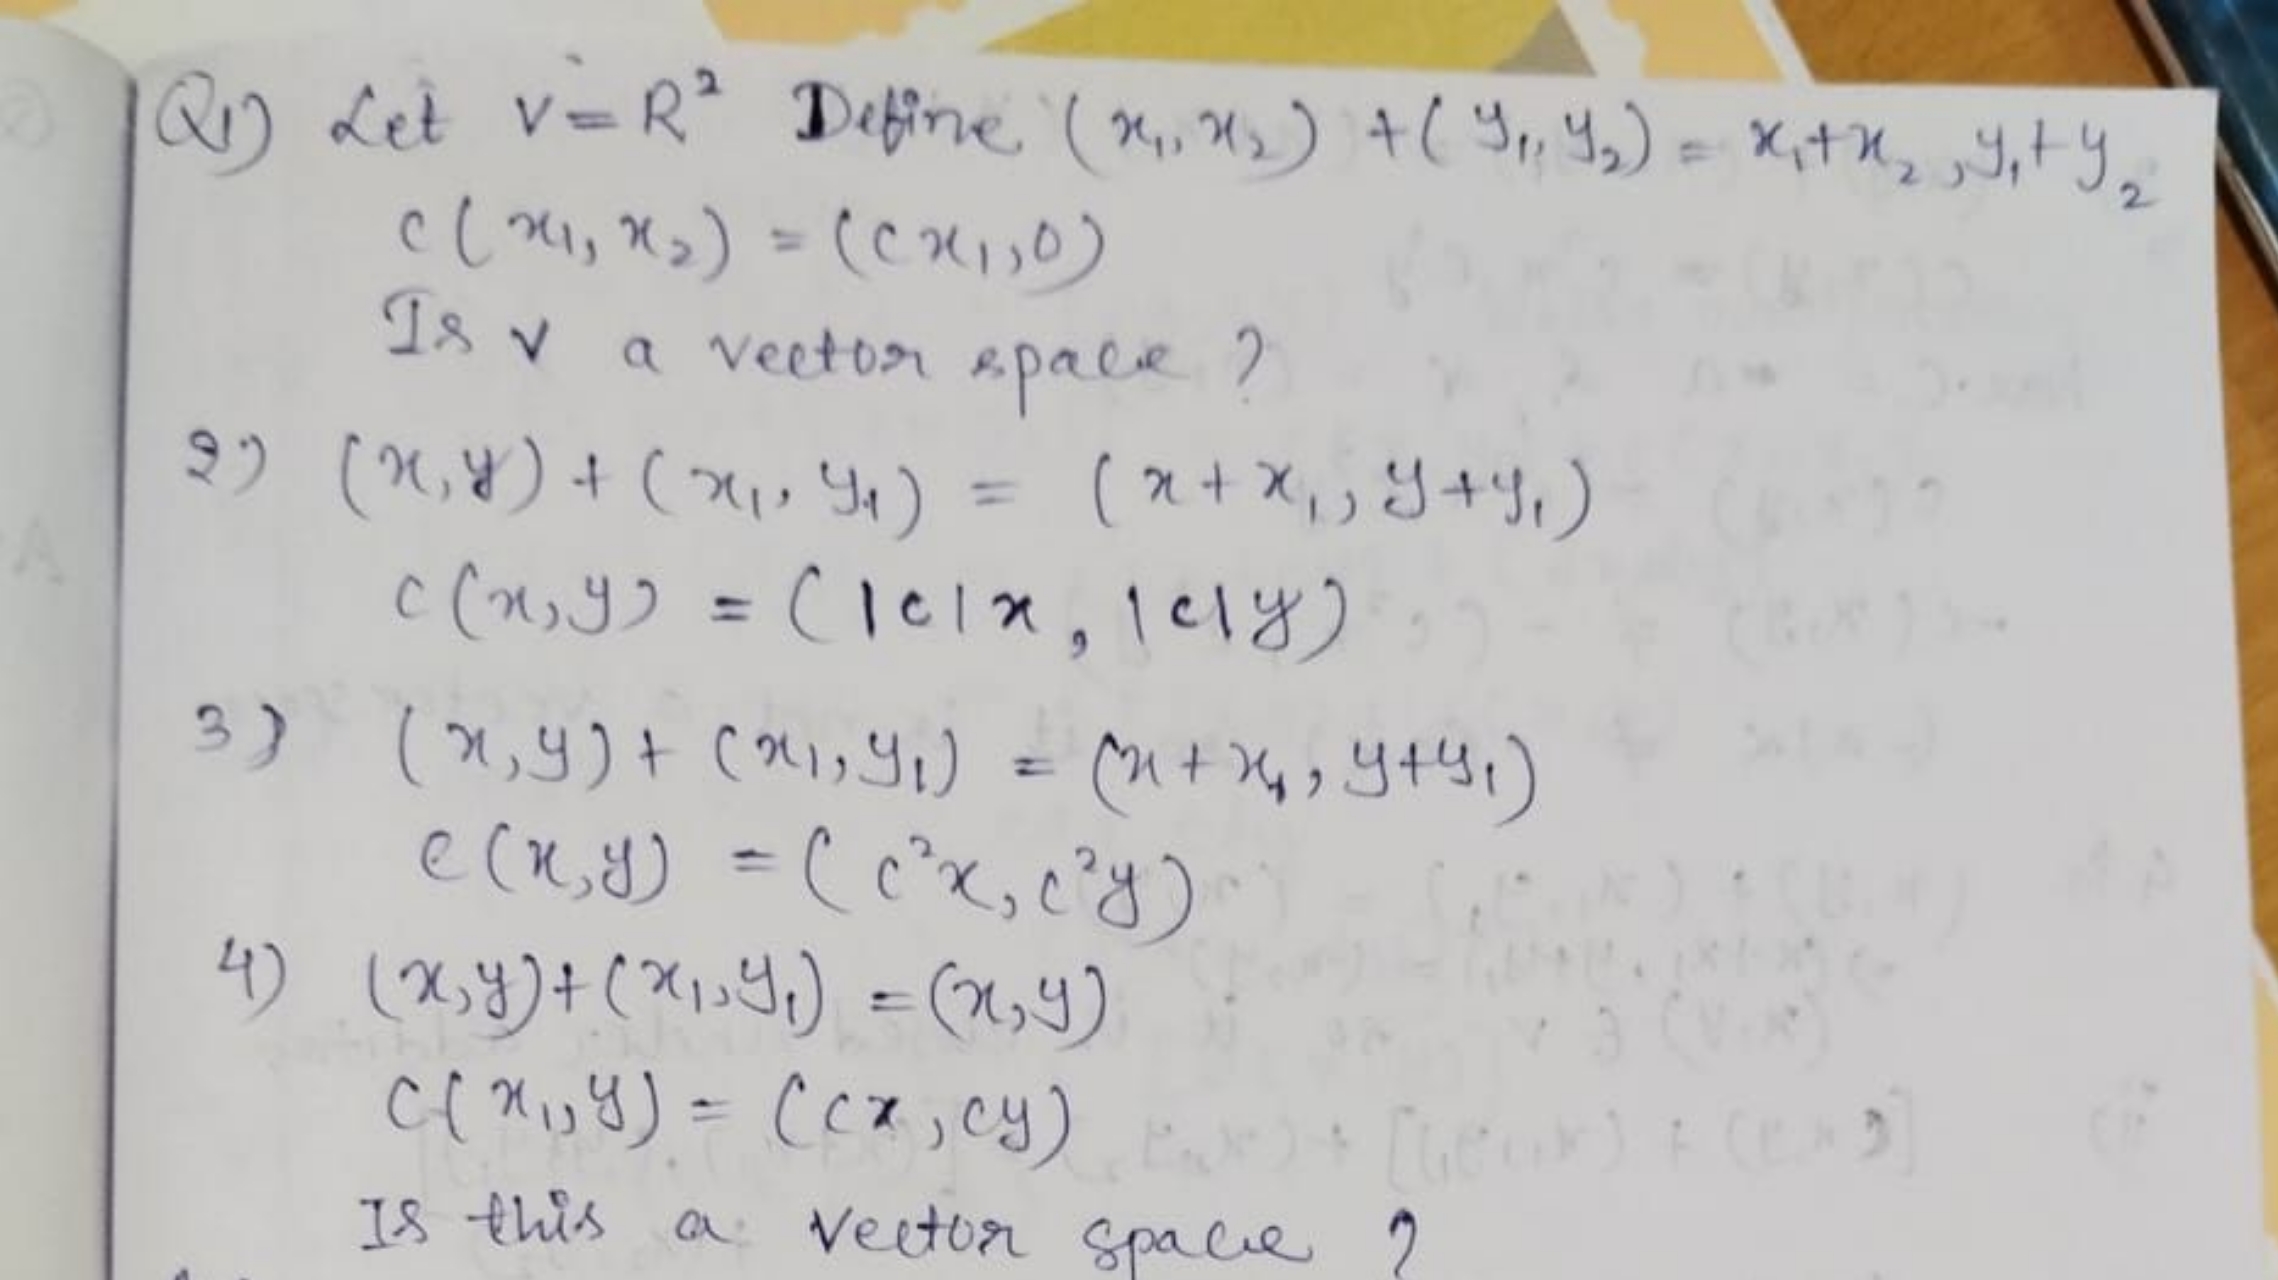 Q1) Let v=R² Define (x₁, x₂) + (y₁, y₂) = x₁+x₂, y₁+y₂
c(x₁, x₂) = (cx₁, 0)
Is v a vector space ?
2) (x, y) + (x₁, y₁) = (x+x₁, y+y₁)
c(x, y) = (|c|x, |c|y)
3) (x, y) + (x₁, y₁) = (x+x₁, y+y₁)
c(x, y) = (c²x, c²y)
4) (x, y) + (x₁, y₁) = (x, y)
c(x₁, y) = (cx, cy)
Is this a vector space ?